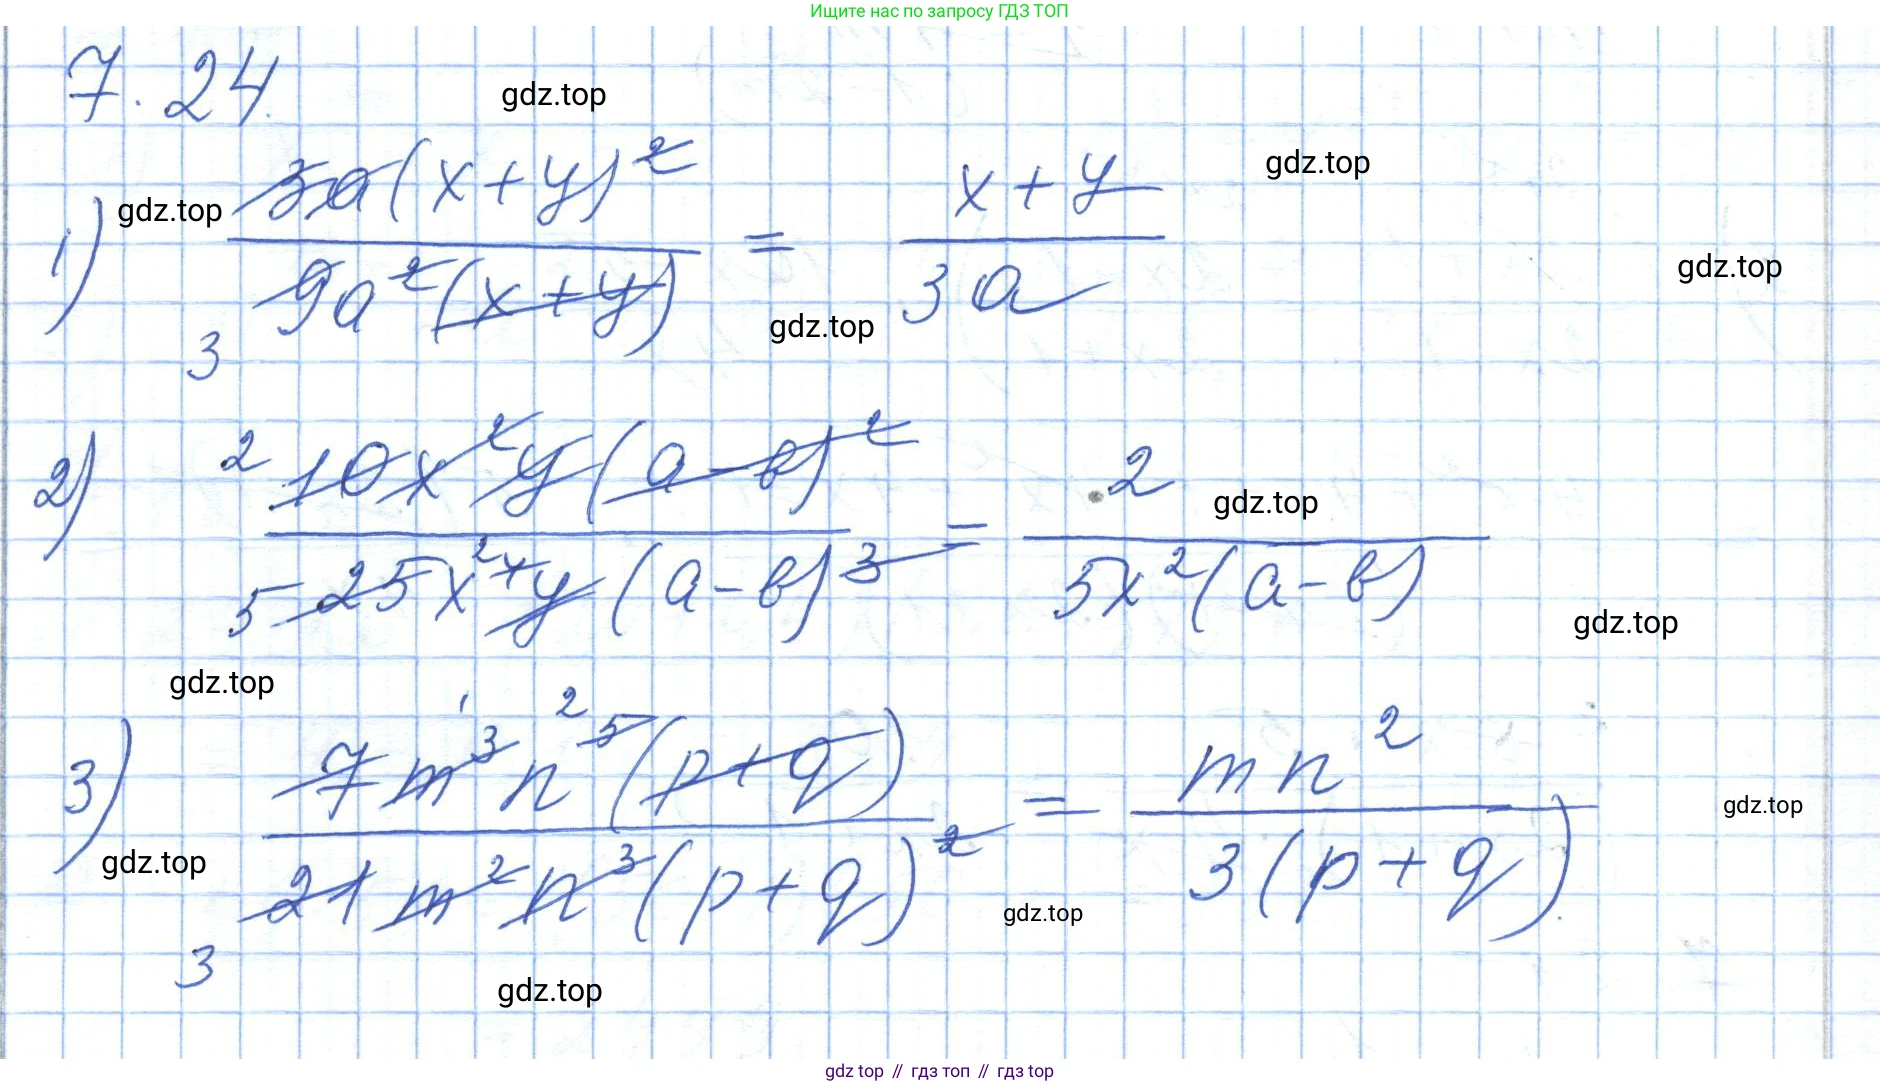 Ищите нас по запросу ГДЗ ТОП
7.24.
gdz.top
1) 3a(x+y)² / 9a²(x+y) = x+y / 3a
3
gdz.top
gdz.top
gdz.top
gdz.top
2) 2 10x²y(a-b)² / 5 25x⁴y(a-b)³ = 2 / 5x²(a-b)
2
gdz.top
gdz.top
gdz.top
3) 7m³n⁵(p+q) / 21m²n³(p+q)² = mn² / 3(p+q).
1 2
3
gdz.top
gdz.top
gdz.top
gdz.top
gdz top // гдз топ // гдз top